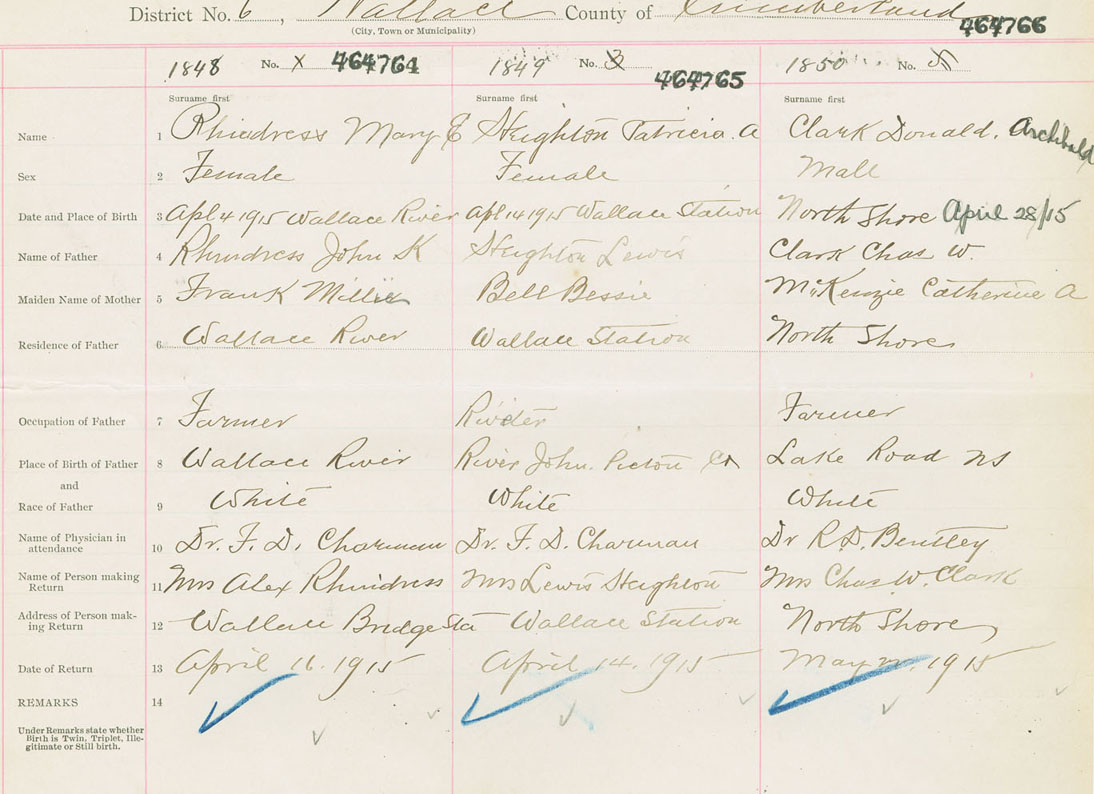 District No. 6, Wallace County of Cumberland
(City, Town or Municipality)
464766
1848 No. 464764 1849 No. 3 464765 1850 No. 5
Surname first Surname first Surname first
Name 1 Rhindress Mary E Heighton Patricia. A Clark Donald. Archibald
Sex 2 Female Female Male
Date and Place of Birth 3 Apl 4 1915 Wallace River Apl 14 1915 Wallace Station North Shore April 28/15
Name of Father 4 Rhindress John K Heighton Lewis Clark Chas W.
Maiden Name of Mother 5 Frank Millie Bell Bessie McKenzie Catherine A
Residence of Father 6 Wallace River Wallace Station North Shore
Occupation of Father 7 Farmer Farmer
Place of Birth of Father 8 Wallace River River John. Pictou Co Lake Road NS
and
Race of Father 9 White White White
Name of Physician in attendance 10 Dr. F. D. Charman Dr. F. D. Charman Dr R. D. Bentley
Name of Person making Return 11 Mrs Alex Rhindress Mrs Lewis Heighton Mrs Chas W. Clark
Address of Person making Return 12 Wallace Bridge Sta Wallace Station North Shore
Date of Return 13 April 16. 1915 April 14. 1915 May 1915
REMARKS 14
Under Remarks state whether
Birth is Twin, Triplet, Ille-
gitimate or Still birth.